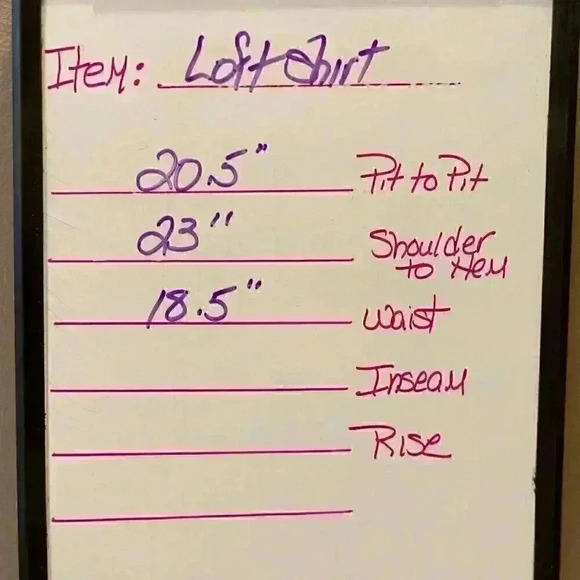 Item: Loft Shirt
20.5" Pit to Pit
23" Shoulder
to Hem
18.5" Waist
Inseam
Rise